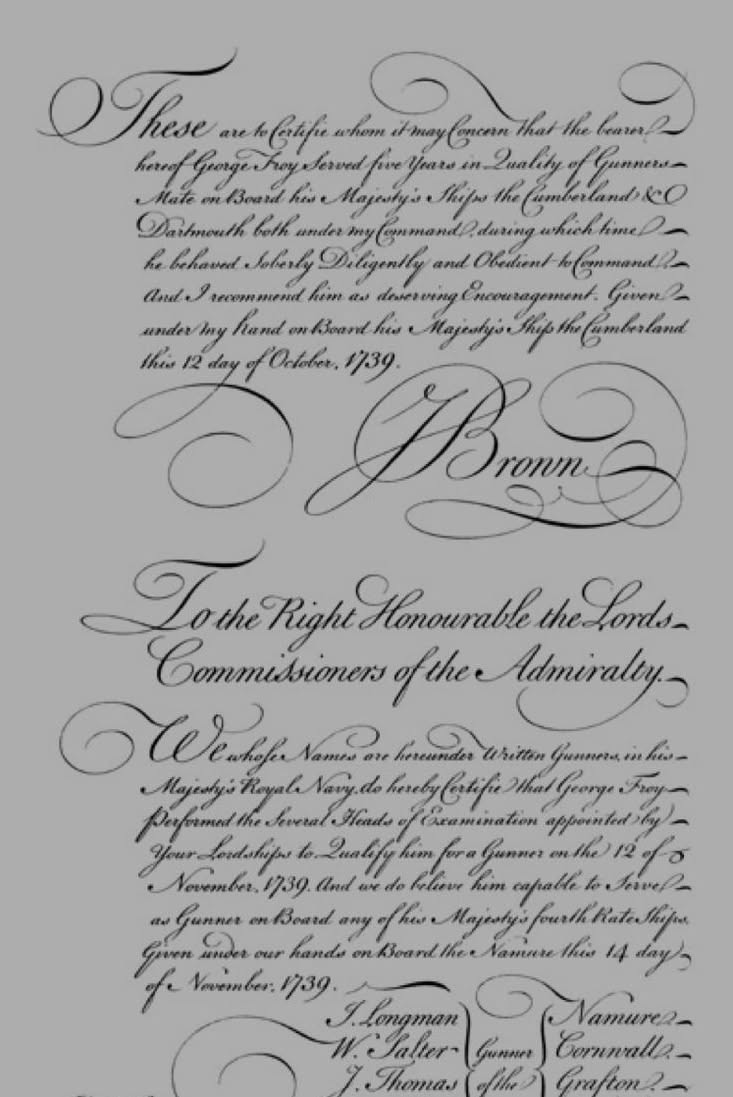 These are to Certifie whom it may Concern that the bearer
hereof George Froy Served five Years in Quality of Gunners
Mate on Board his Majesty's Ships the Cumberland &
Dartmouth both under my Command, during which time
he behaved Soberly Diligently and Obedient to Command.
And I recommend him as deserving Encouragement. Given
under my hand on Board his Majesty's Ship the Cumberland
this 12 day of October, 1739.
J Brown
To the Right Honourable the Lords
Commissioners of the Admiralty.
We whose Names are hereunder Written Gunners, in his
Majesty's Royal Navy, do hereby Certifie that George Froy
Performed the Several Heads of Examination appointed by
Your Lordships to Qualify him for a Gunner on the 12 of
November, 1739. And we do believe him capable to Serve
as Gunner on Board any of his Majesty's fourth Rate Ships.
Given under our hands on Board the Namure this 14 day
of November, 1739.
J. Longman Namure
W. Salter Gunner Cornwall
J. Thomas of the Grafton